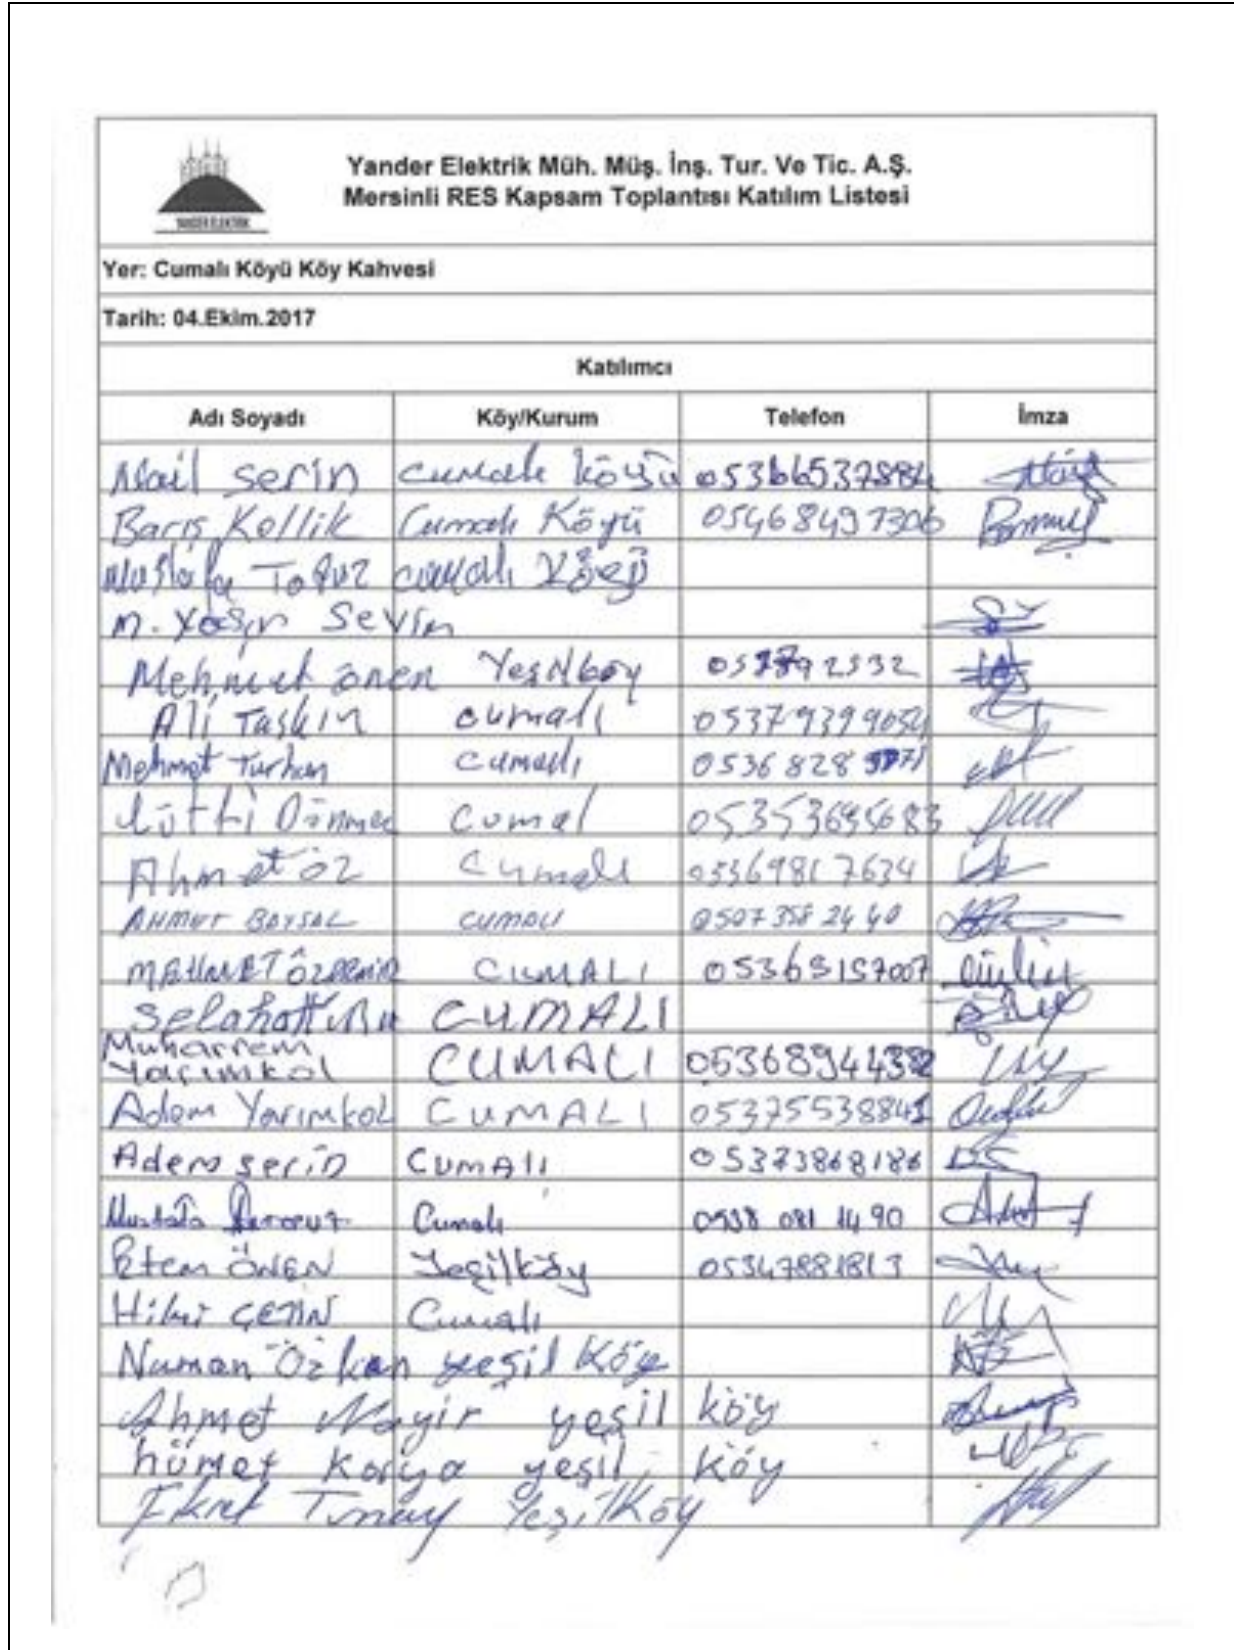 YANDER ELEKTRİK
Yander Elektrik Müh. Müş. İnş. Tur. Ve Tic. A.Ş.
Mersinli RES Kapsam Toplantısı Katılım Listesi
Yer: Cumalı Köyü Köy Kahvesi
Tarih: 04.Ekim.2017
Katılımcı
Adı Soyadı Köy/Kurum Telefon İmza
Nail Serin Cumalı Köyü 05366537884
Barış Kollik Cumalı Köyü 05468497306
Mustafa Cumalı Köyü
M. Yaşın Sevim
Mehmet Önen Yeşilköy
Ali Taşkın Cumalı 05379399054
Mehmet Turhan Cumalı 0536 828
Lütfi Dönmez Cumal
Ahmet Öz Cumalı 05369817634
AHMET BAYSAL CUMALI 0507 358 24 40
MEHMET ÖZDEMİR CUMALI 05365157007
CUMALI
Muharrem Yarımkol CUMALI
Adem Yarımkol CUMALI 05375538841
Adem Serin CUMALI 05373868186
Mustafa Cumalı 0538 081 14 90
Etem ÖNEN Yeşilköy 05347881813
Hilmi ÇETİN Cumalı
Numan Özkan yeşil Köy
Ahmet Nayir yeşil köy
hümet Kaya yeşil köy
Yeşilköy